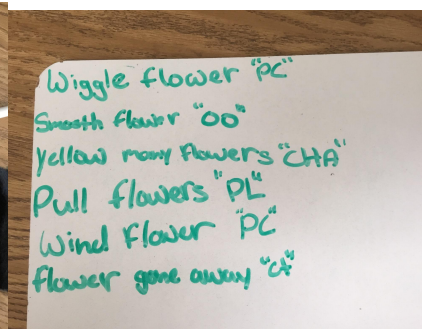 Wiggle flower "PC"
Smooth flower "OO"
Yellow many flowers "CHA"
Pull flowers "PL"
Wind Flower "PC"
flower gone away "ct"